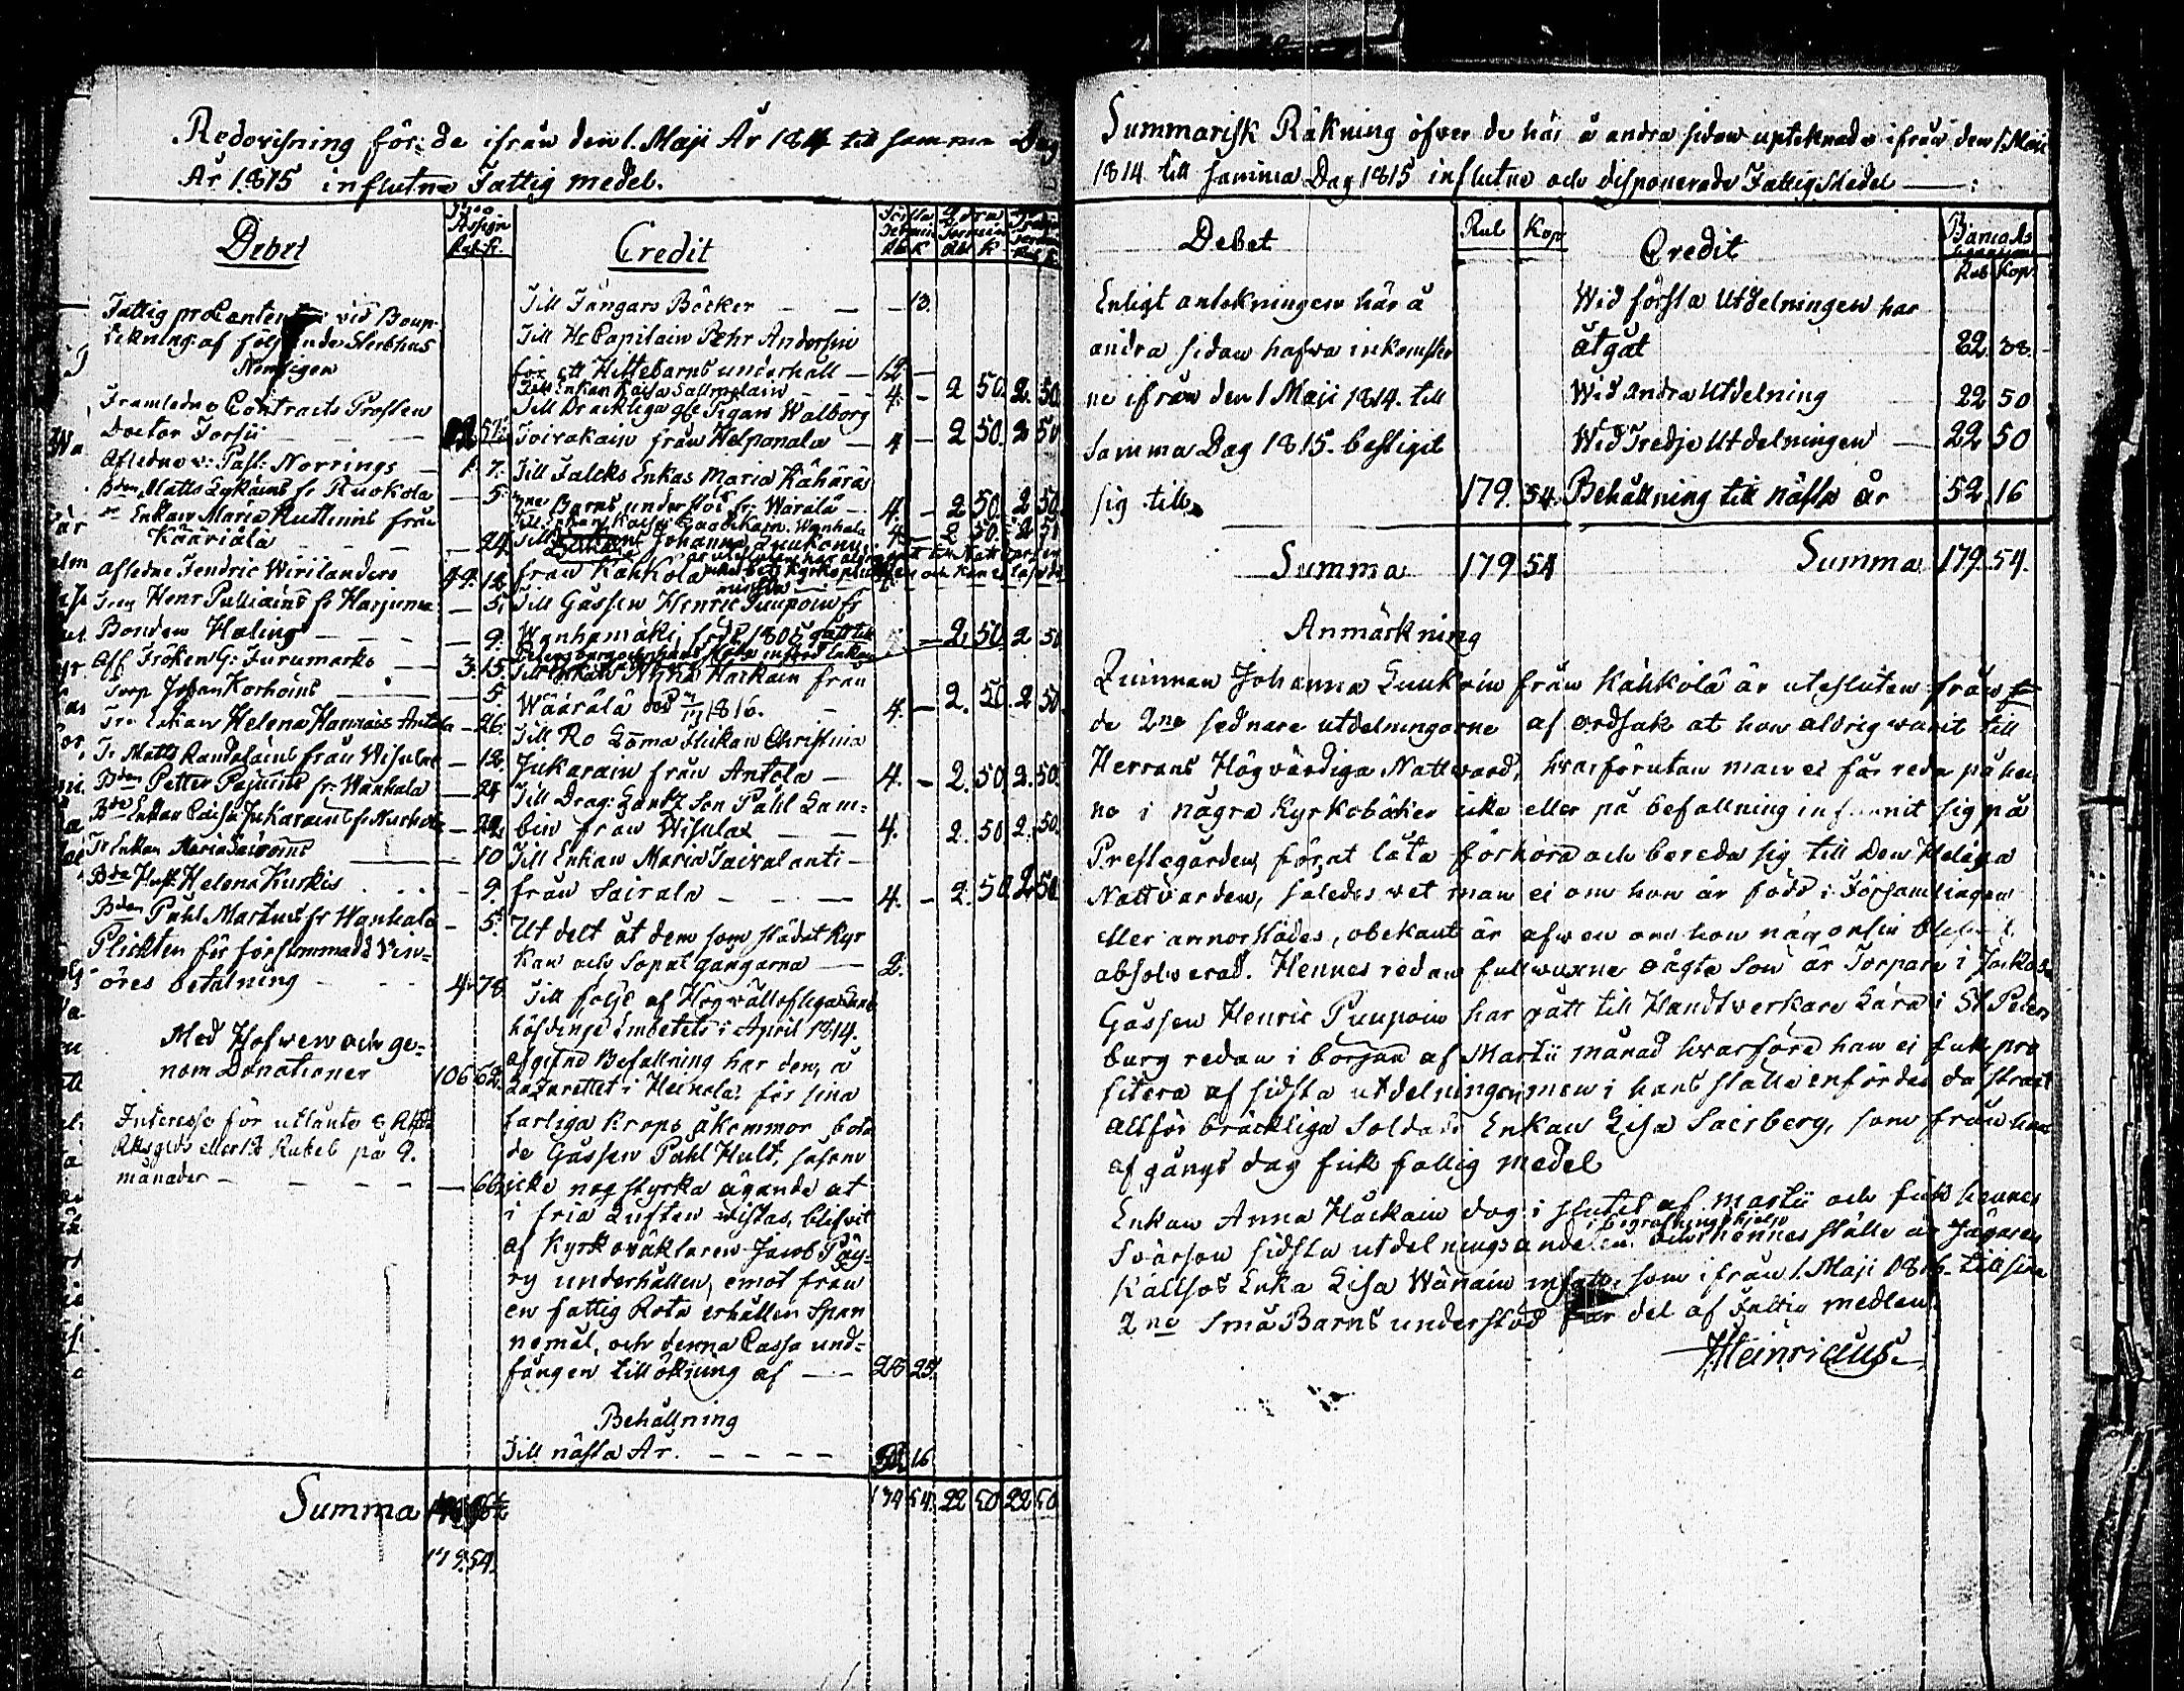 Redovisning för de ifrån den 1. Maji År 1814 till samma Dag
År 1815 influtne Fattig medel.
Debet
Assign
Rub. K.
Fattig procenten vid Boup-
tekning af följande Sterbhus
Nemligen
Framledne Contracts Prosten
Doctor Forsii — — — 57
Afledne v: Past: Norrings — 1. 7.
Bden Matts Lykäins fr Ruokola — 5.
Enkan Maria Ruttinins från
Kääriälä — — — 24.
Afledne Fendric Wirilanders 49. 12.
Henr Pulliains fr Harjuma — 5.
Bonden Halings — — — 9.
Afl Fröken G: Furumarks — 3. 15.
Torp Johan Korhoins — 5.
Enkan Helena Hannäis Antola — 26.
Ir Matts Randalains från Wisulax — 12.
Bden Petter Pajuins fr. Wanhala — 24
Bde Enkan Caisa Jukarains fr Nurhola —
Ir Enkan Maria — 10
Bde Hust. Helena Kurkis . . . - 9.
Bden Påhl Martins fr Wanhala — 5.
Plickten för försummade Vin-
öres betalning — — — 4. 78
Med Hofwen och ge-
nom Donationer 106 62.
Interesse för utlånte 8 Rd
Riksgäds eller 12 Rubel på 9.
månader — — — — — 66
Summa
179. 54.
Credit
Första Termin Andra Termin Tredje Termin
Rub K Rub K Rub K
Till Fångars Böcker — — — 13.
Till Hr Capitain Pehr Andersin
för ett Hittebarns underhåll — 12 —
Till Enkan Kaisa Sallmelain — — 4. — 2 50. 2. 50.
Till Bräckliga gle Pigan Walborg
Toivakain från Helponala — 4 — 2 50. 2 50
Till Falcks Enkas Maria Käharäs
2ne Barns underhol fr. Wärälä — 4. — 2 50. 2 50.
Till Enkan Kaisa Wanhala 4 — 2 50. 2 50
Till Johanna Luukonen
från Kähkölä
Till Gåssen Henric Puupoin fr
Wanhamäki, född 1805 — 2. 50. 2 50
Till Enkan Anna Hackain från
Wäärälä död 1816. — 4. — 2. 50. 2 50.
Till Ro Låma Flickan Christina
Jukarain från Antola — 4. — 2. 50 2. 50.
Till Drag: Lantz Son Påhl Lam-
bin från Wisulax — — 4. 2. 50 2. 50.
Till Enkan Maria Sairalanti —
från Sairala — — — 4. — 2. 50. 2. 50
Ut delt åt dem som städat Kyr
kan och Sopat gångarna — 2.
Till följe af Högvällofliga Lands
höfdinge Embetets i April 1814.
afgifne Befallning har den, å
Lazarettet i Heinola, för sina
farliga Krops åkommor bota
de Gåssen Påhl Hult, såsom
icke nog styrka ägande at
i fria Luften vistas, blifvit
af Kyrkoväktaren Jacob Pöy-
ry underhållen, emot från
en fattig Rota erhållen Span
nemål, och denna Cassa und-
fången tillökning af — — 28 25.
Behållning
Till nästa År. — — — — 52 16
179 54. 22 50 22 50
Summarisk Räkning öfwer de här å andra sidan upteknade ifrån den 1 Maji
1814 till samma Dag 1815 influtne och disponerade Fattig Medel — :
Debet
Rub Kop
Enligt antekningen här å
andra sidan hafwa inkomster
ne ifrån den 1 Maji 1814. till
samma Dag 1815. bestigit
sig till. 179. 54.
Summa 179 54
Credit
Banco As
Rub Kop.
Wid första Utdelningen har
åtgåt 82 38.
Wid Andra Utdelning 22 50
Wid Tredje Utdelningen — 22 50
Behållning till nästa år 52. 16
Summa 179. 54.
Anmärkning
Quinnan Johanna Luukoin från Kähkölä är utesluten från
de 2ne sednare utdelningarne af ordsak at hon aldrig warit till
Herrans Högvärdiga Nattward, hvarförutan man ei får reda på hen
ne i några Kyrkoböcker icke eller på befallning infunnit sig på
Prestegården, för at låta förhöra och bereda sig till Den Heliga
Nattvarden, således vet man ei om hon är född i Församlingen
eller annorstädes, obekant är äfwen om hon någonsin blifvit
absolverad. Hennes redan fullvuxne oägta Son är Torpare i
Gåssen Henric Puupoin har gått till Handtverkare Lära i St Peters
burg redan i början af Martii månad hvarföre han ei fick pro
fitera af sidsta utdelningen, men i hans ställe infördes da strax
allför bräckliga Soldats Enkan Lisa Sairberg, som från hans
afgångs dag fick fattig medel
Enkan Anna Hackain dog i slutet af Martii och fick hennes
Svärson sidsta utdelnings andelen i begrafnings hielp hennes ställe är Jägaren
Källsos Enka Lisa Wänäin insatt, som ifrån 1. Maji 1816. till sina
2ne Små Barns understöd får del af Fattig medlen.
HHeinricius.